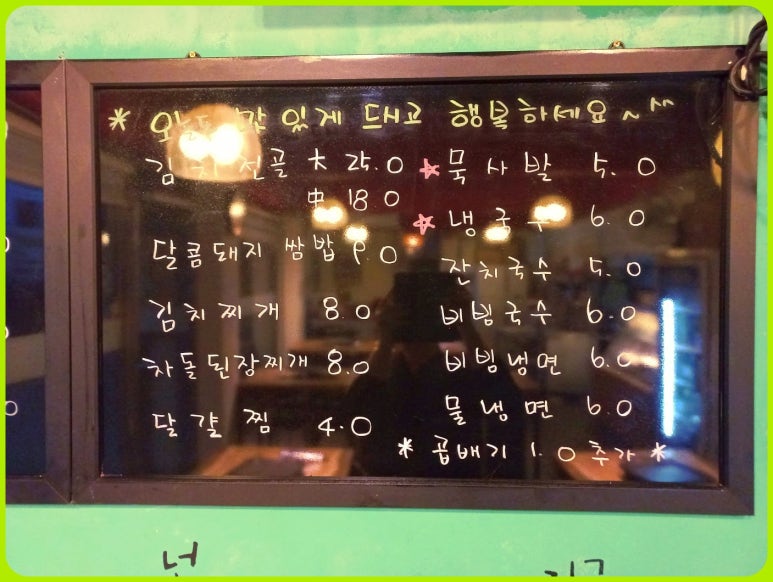 * 오늘도 맛 있게 드시고 행복하세요~^^
김치전골 大 25.0
中 18.0
달콤돼지 쌈밥 9.0
김치찌개 8.0
차돌된장찌개 8.0
달걀찜 4.0
☆ 묵사발 5.0
☆ 냉국수 6.0
잔치국수 5.0
비빔국수 6.0
비빔냉면 6.0
물냉면 6.0
* 곱배기 1.0 추가 *
넌